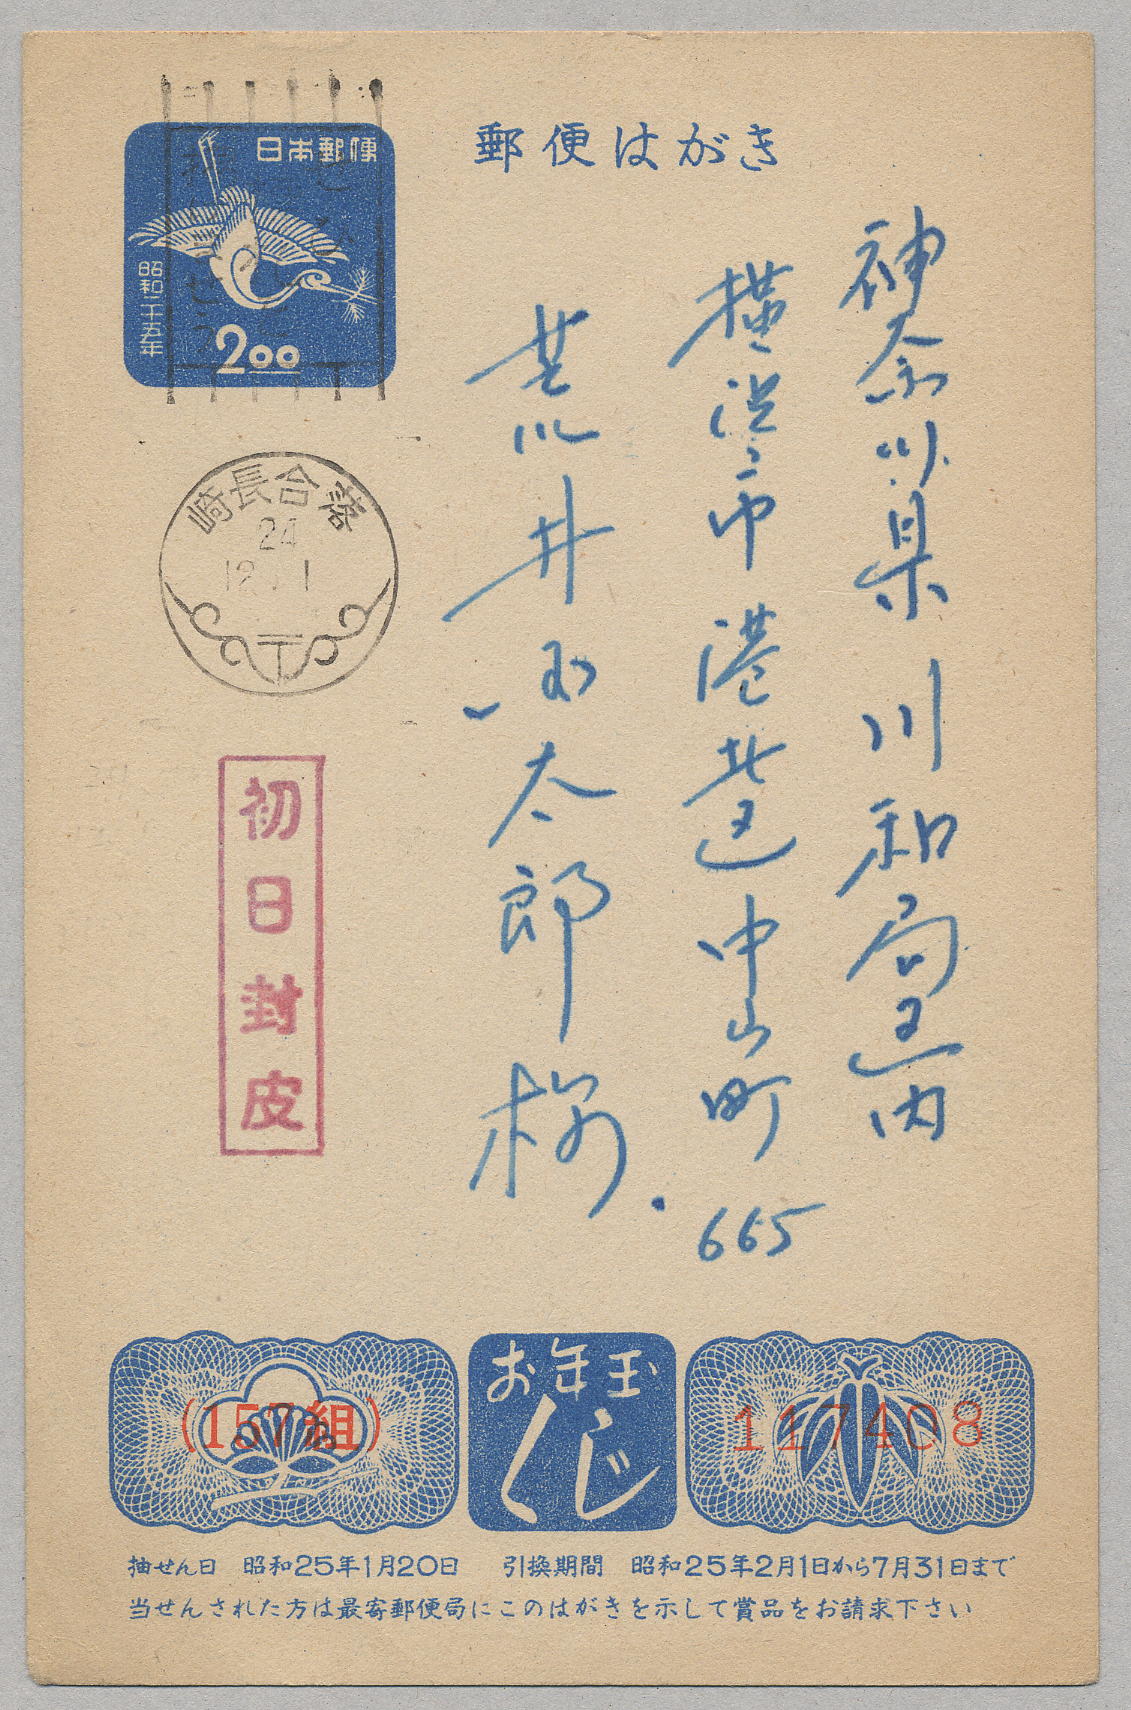 郵便はがき
日本郵便
昭和二十五年
2.00
落合長崎
24
12
1
初日封皮
神奈川県川和局区内
横浜市港北区中山町665
荒井国太郎様
お年玉
くじ
(157組)
117408
抽せん日 昭和25年1月20日 引換期間 昭和25年2月1日から7月31日まで
当せんされた方は最寄郵便局にこのはがきを示して賞品をお請求下さい